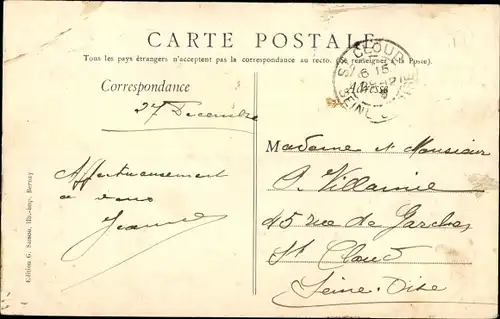 CARTE POSTALE
Tous les pays étrangers n'acceptent pas la correspondance au recto. (Se renseigner à la Poste).
Correspondance
Adresse
ST CLOUD
6 15
SEINE
27 Decembre
Affectueusement
a vous
Jeanne
Madame et Monsieur
P. Villaume
45 rue de Garches
St Cloud
Seine-Oise
Edition G. Samou, lib.-imp. Bernay